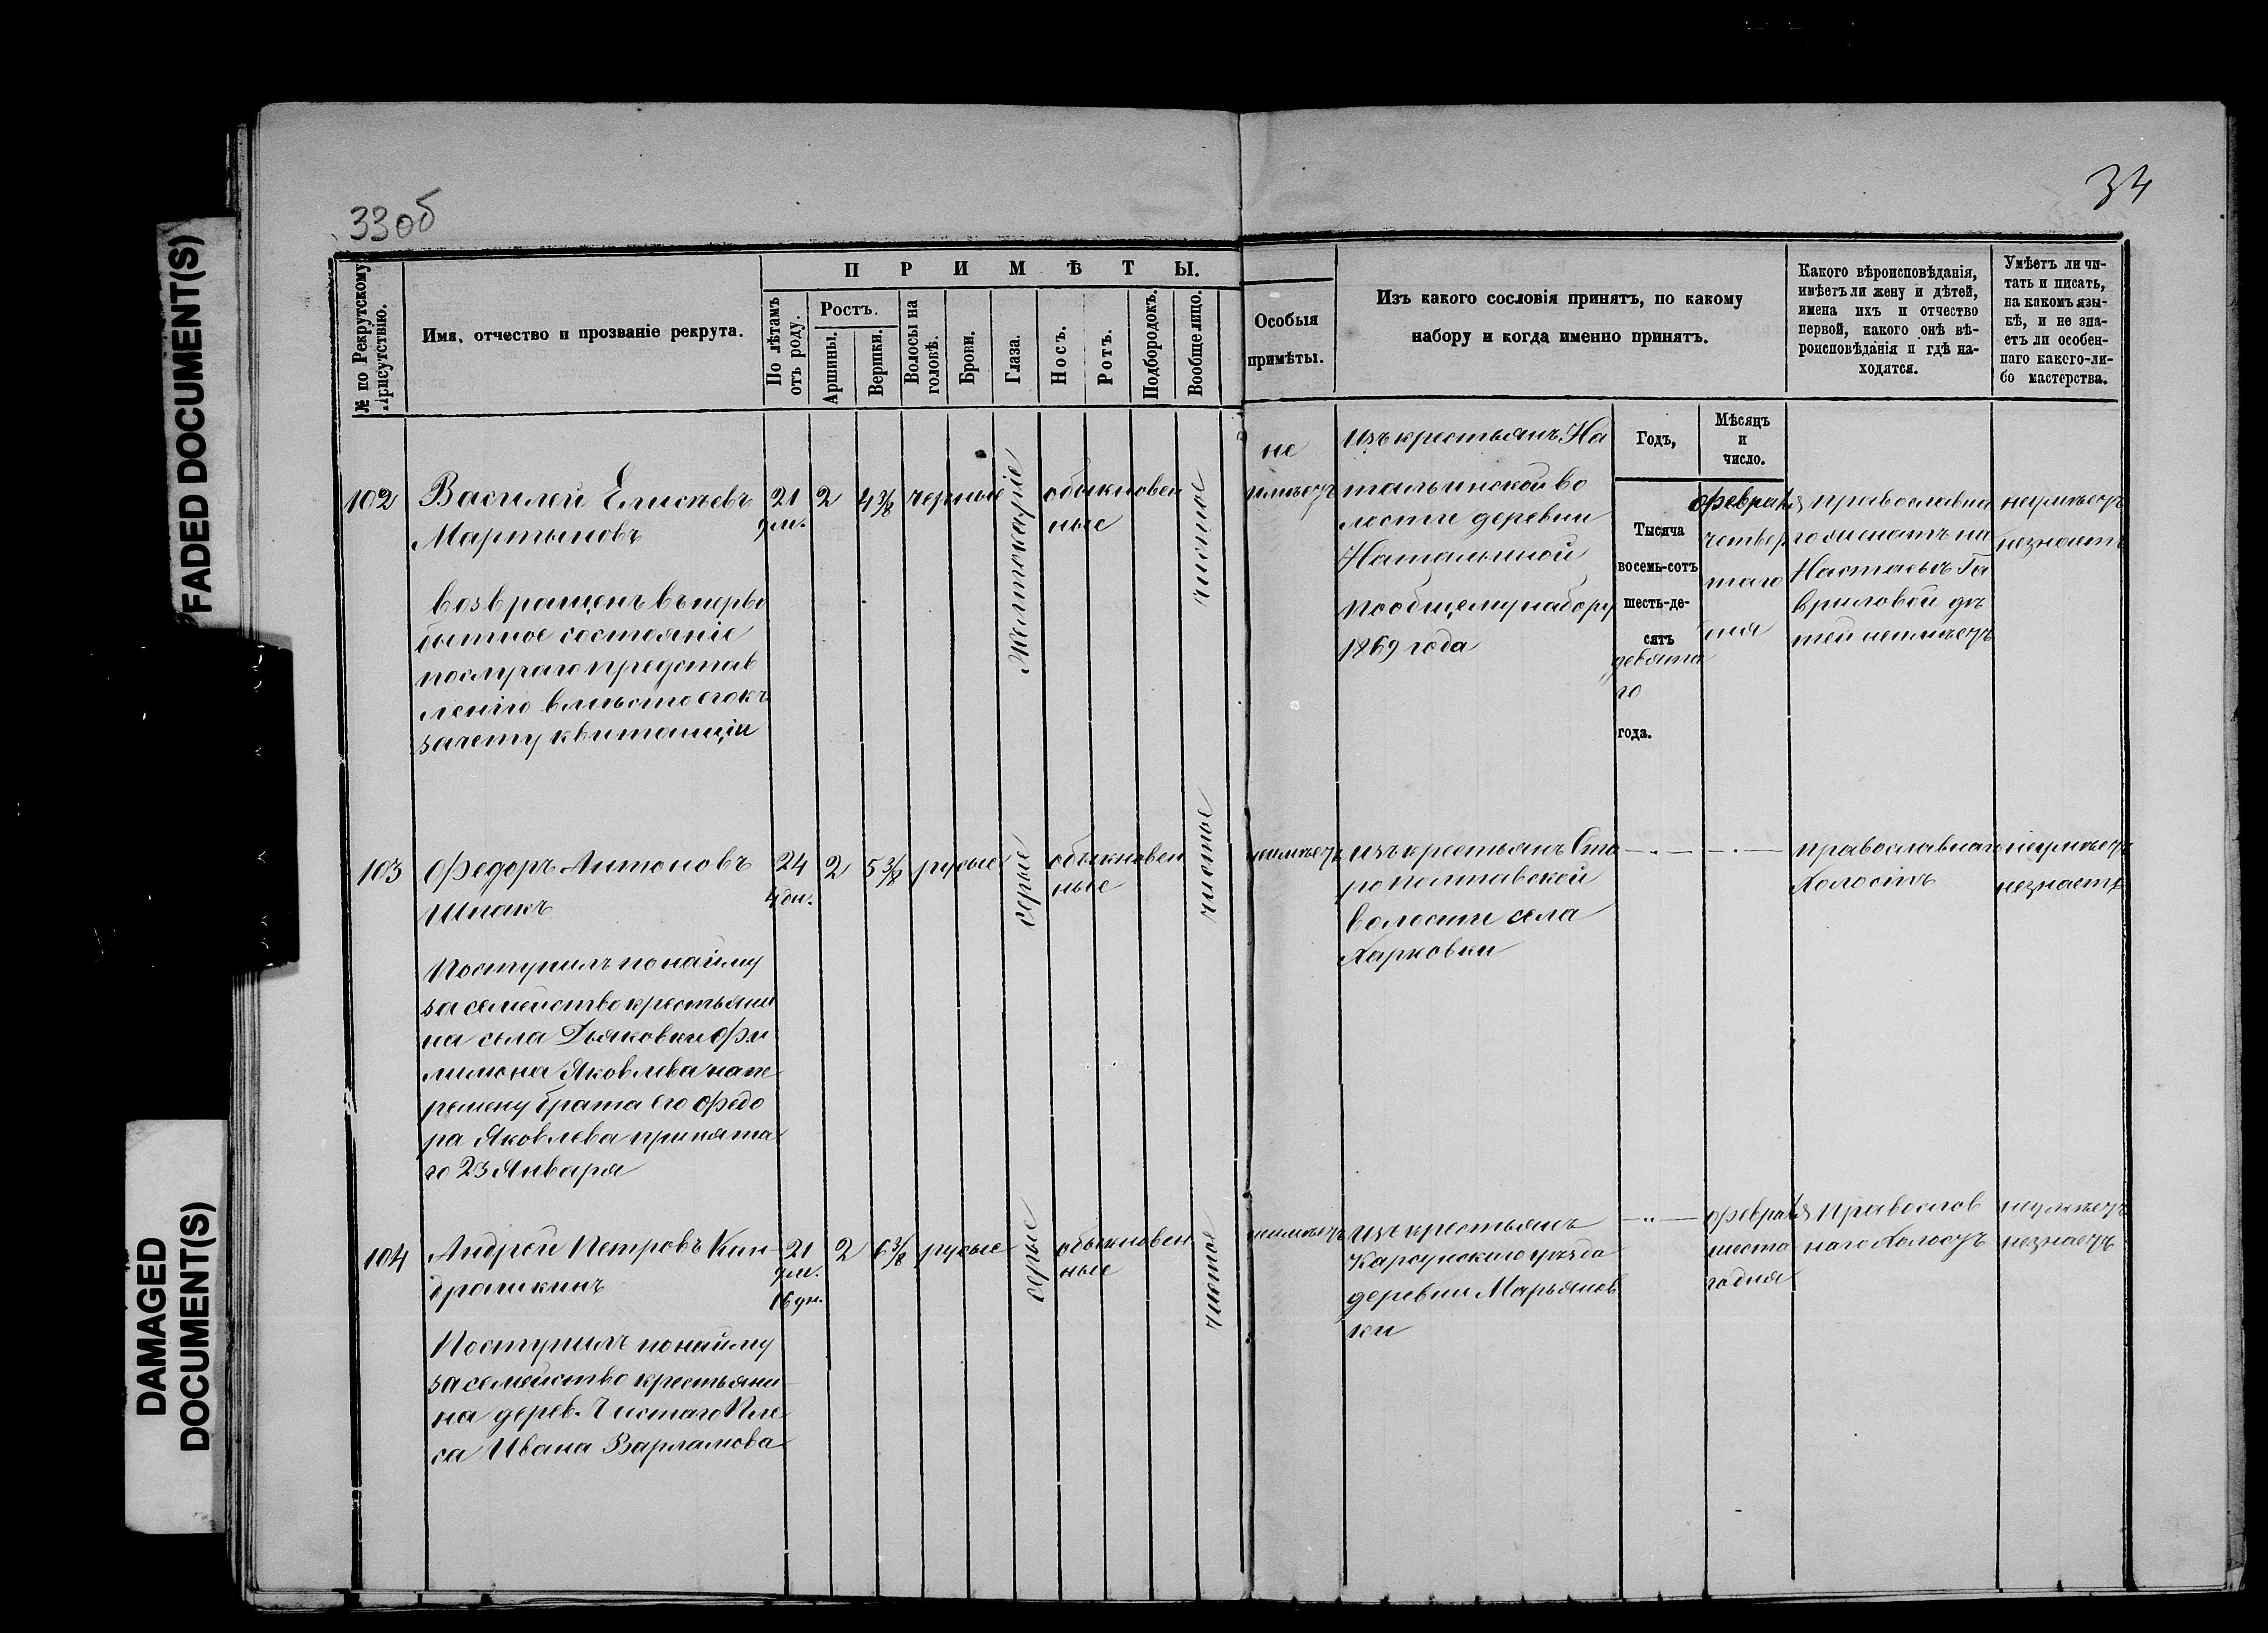 FADED DOCUMENT(S)
DAMAGED
DOCUMENT(S)
33об
34
№ по Рекрутскому
Присутствію.
Имя, отчество и прозваніе рекрута.
ПРИМѢТЫ.
По лѣтамъ
отъ роду.
Ростъ.
Аршины.
Вершки.
Волосы на
головѣ.
Брови.
Глаза.
Носъ.
Ротъ.
Подбородокъ.
Вообще лицо.
Особыя
примѣты.
Изъ какого сословія принятъ, по какому
набору и когда именно принятъ.
Какого вѣроисповѣданія,
имѣетъ ли жену и дѣтей,
имена ихъ и отчество
первой, какого онѣ вѣ-
роисповѣданія и гдѣ на-
ходятся.
Умѣетъ ли чи-
тать и писать,
на какомъ язы-
кѣ, и не зна-
етъ ли особен-
наго какого-ли-
бо мастерства.
Годъ,
Мѣсяцъ
и
число.
102
Василей Елисѣевъ
Мартыновъ
возвращенъ въ перво
бытное состояніе
послучаю представ
ленію вместо его къ
зачету квитанціи
21
9 м.
2
4 3/8
черные
желтокаріе
обыкновен
ные
чистое
не
имѣетъ
изъ крестьянъ На
тальинской во
лости деревни
Натальиной
пообщему набору
1869 года
Тысяча
восемь-сотъ
шесть-де-
сятъ
девята
го
года.
февраля
четвер
таго
дня
православна
го женатъ на
Настасьѣ Га
вриловой дѣ
тей неимѣетъ
неумѣетъ
незнаетъ
103
Федоръ Антоновъ
Шпакъ
Поступилъ по найму
за семейство крестьяни
на села Дьяковки Фи
лимона Яковлева на пе
ремену брата его Федо
ра Яковлева принята
го 23 Января
24
4 дн.
2
5 3/8
русые
серые
обыкновен
ные
чистое
неимѣетъ
изъ крестьянъ Ста
рополтавской
волости села
Харковки
— „ — „ —
православнаго
Холостъ
неумѣетъ
незнаетъ
104
Андрей Петровъ Кин
драшкинъ
Поступилъ по найму
за семейство крестьяни
на дерев. Чистаго Пле
са Ивана Варламова
21
9 м.
16 дн.
2
6 3/8
русые
серые
обыкновен
ные
чистое
неимѣетъ
изъ крестьянъ
Карсунскаго уѣзда
деревни Марьянов
ки
— „ —
февраля
шеста
го дня
Православ
наго Холостъ
неумѣетъ
незнаетъ